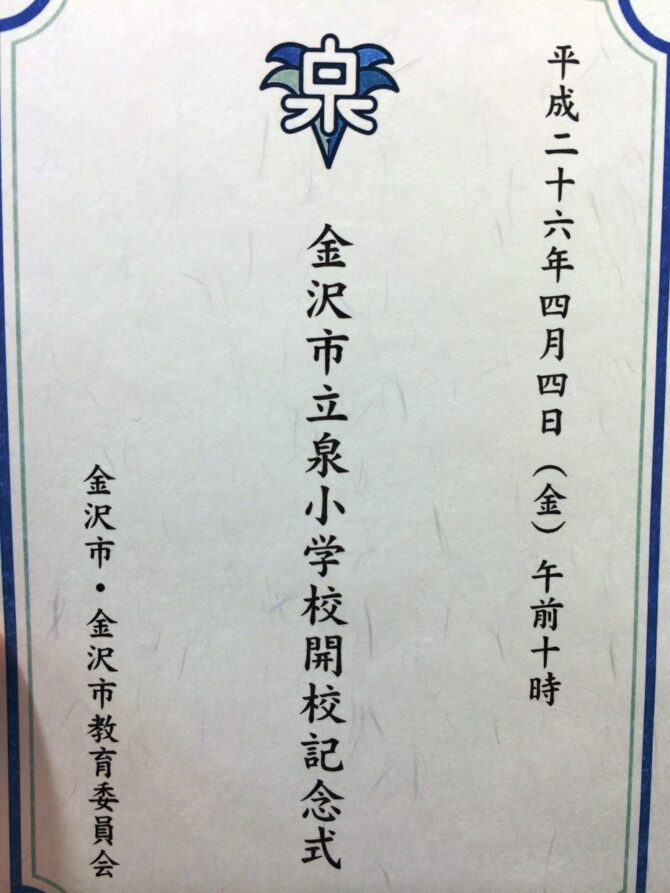 平成二十六年四月四日（金）午前十時
泉
金沢市立泉小学校開校記念式
金沢市・金沢市教育委員会